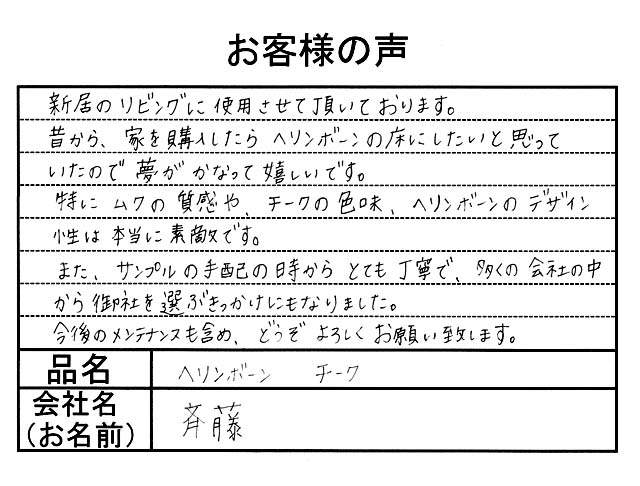 お客様の声
新居のリビングに使用させて頂いております。
昔から、家を購入したらヘリンボーンの床にしたいと思って
いたので夢がかなって嬉しいです。
特にムクの質感や、チークの色味、ヘリンボーンのデザイン
性は本当に素敵です。
また、サンプルの手配の時からとても丁寧で、多くの会社の中
から御社を選ぶきっかけにもなりました。
今後のメンテナンスも含め、どうぞよろしくお願い致します。
品名 ヘリンボーン チーク
会社名
(お名前) 斉藤